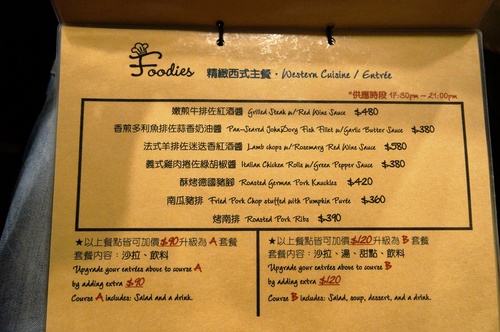 Foodies 精緻西式主餐 · Western Cuisine / Entrée
*供應時段 17:30pm ~ 21:00pm
嫩煎牛排佐紅酒醬 Grilled Steak w/ Red Wine Sauce $480
香煎多利魚排佐蒜香奶油醬 Pan-Seared JohnDory Fish Fillet w/Garlic Butter Sauce $380
法式羊排佐迷迭香紅酒醬 Lamb chops w/Rosemary Red Wine Sauce $580
義式雞肉捲佐綠胡椒醬 Italian Chicken Rolls w/Green Pepper Sauce $380
酥烤德國豬腳 Roasted German Pork Knuckles $420
南瓜豬排 Fried Pork Chop stuffed with Pumpkin Purée $360
烤南排 Roasted Pork Ribs $390
★以上餐點皆可加價$90升級為 A 套餐
套餐內容：沙拉、飲料
Upgrade your entrées above to course A
by adding extra $90
Course A includes: Salad and a drink.
★以上餐點皆可加價$120升級為 B 套餐
套餐內容：沙拉、湯、甜點、飲料
Upgrade your entrées above to course B
by adding extra $120
Course B includes: Salad, soup, dessert, and a drink.